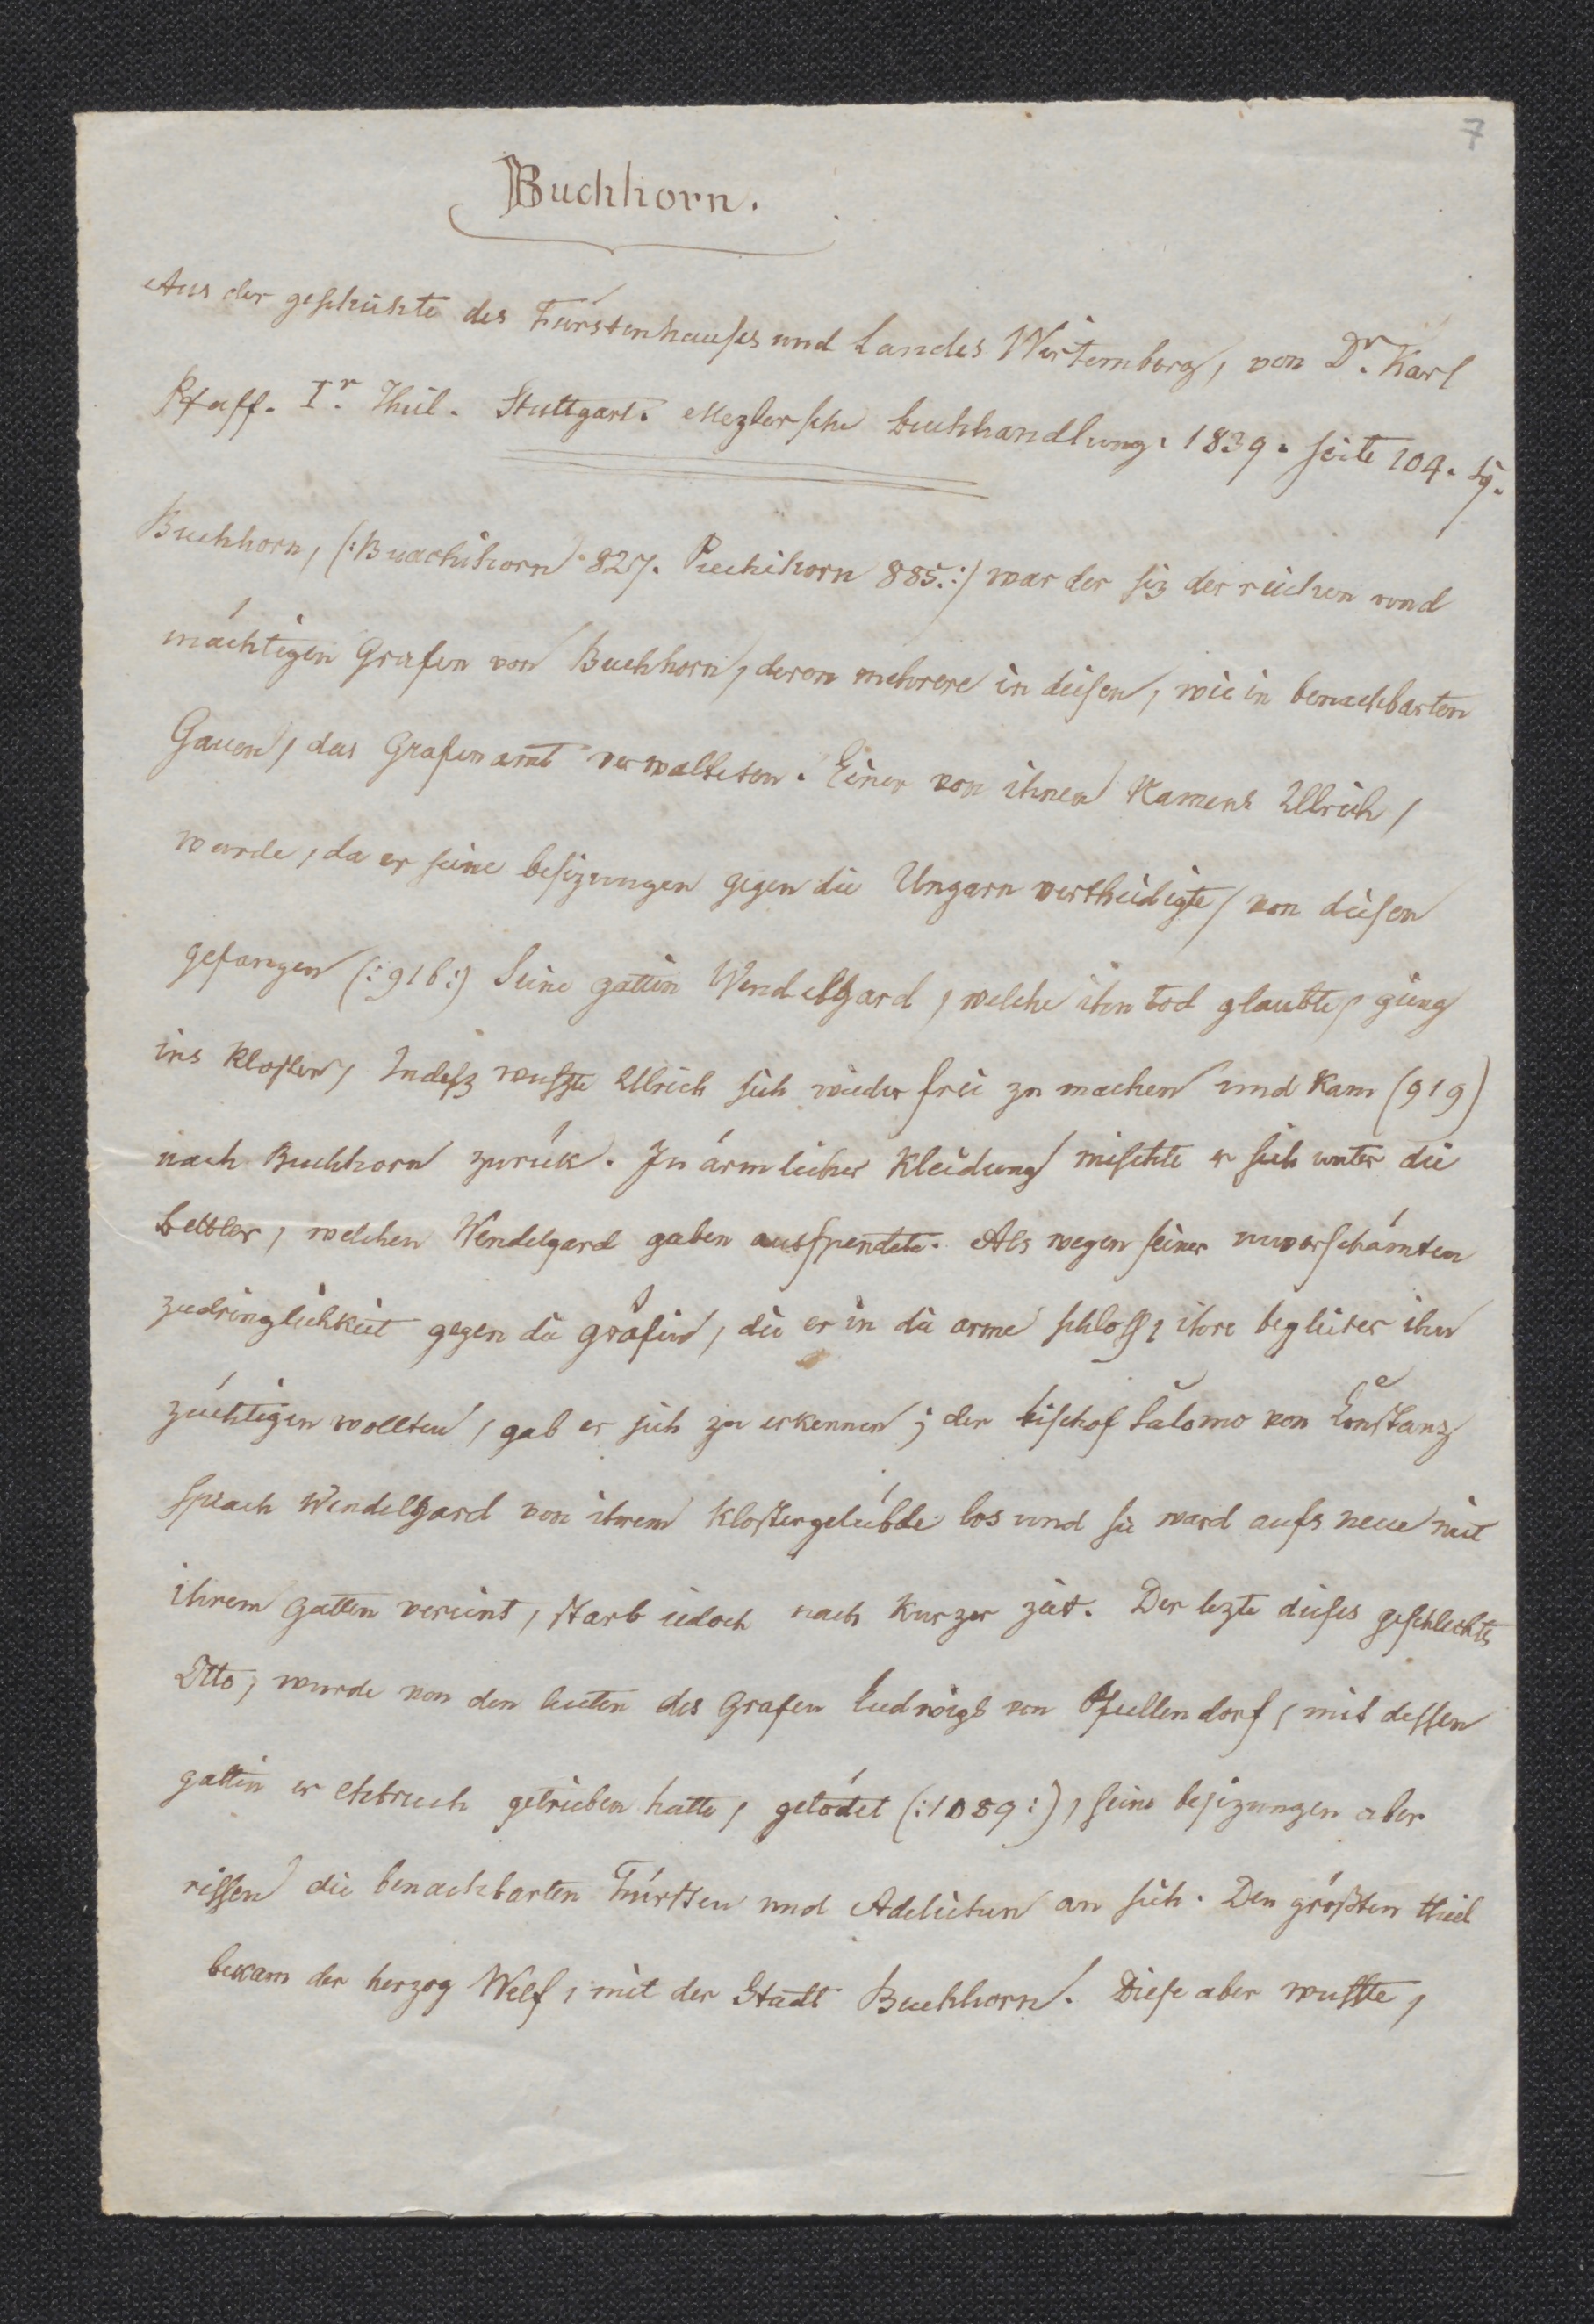 7
Buchhorn.
Aus der geschichte des Fürstenhauses und Landes Wirtemberg, von Dr. Karl
Pfaff. Ir. Theil. Stuttgart. Mezlersche buchhandlung. 1839. seite 104. fg.
Buchhorn, (:Buachihorn 827. Puchihorn 885.:) war der siz der reichen und
mächtigen Grafen von Buchhorn, deren mehrere in diesen, wie in benachbarten
Gauen, das Grafenamt verwalteten. Einer von ihnen Namens Ulrich,
wurde, da er seine besizungen gegen die Ungarn vertheidigte, von diesen
gefangen (:916:) Seine gattin Wendelgard, welche ihn tod glaubte, gieng
ins Kloster, Indesz wuszte Ulrich sich wieder frei zu machen und kam (919)
nach Buchhorn zurück. In ärmlicher Kleidung mischte er sich unter die
bettler, welchen Wendelgard gaben ausspendete. Als wegen seiner unverschämten
zudringlichkeit gegen die gräfin, die er in die arme schloss, ihre begleiter ihn
züchtigen wollten, gab er sich zu erkennen; der bischof Salomo von Constanz
sprach Wendelgard von ihrem klostergelübde los und sie ward aufs neue mit
ihrem gatten vereint, starb iedoch nach kurzer zeit. Der lezte dieses geschlechts
Otto, wurde von den leuten des Grafen Ludwigs von Pfullendorf, mit dessen
gattin er ehbruch getrieben hatte, getödet (:1089:), seine besizungen aber
rissen die benachbarten Fürsten und Adelichen an sich. Den größten theil
bekam der herzog Welf, mit der Stadt Buchhorn. Diese aber wusste,